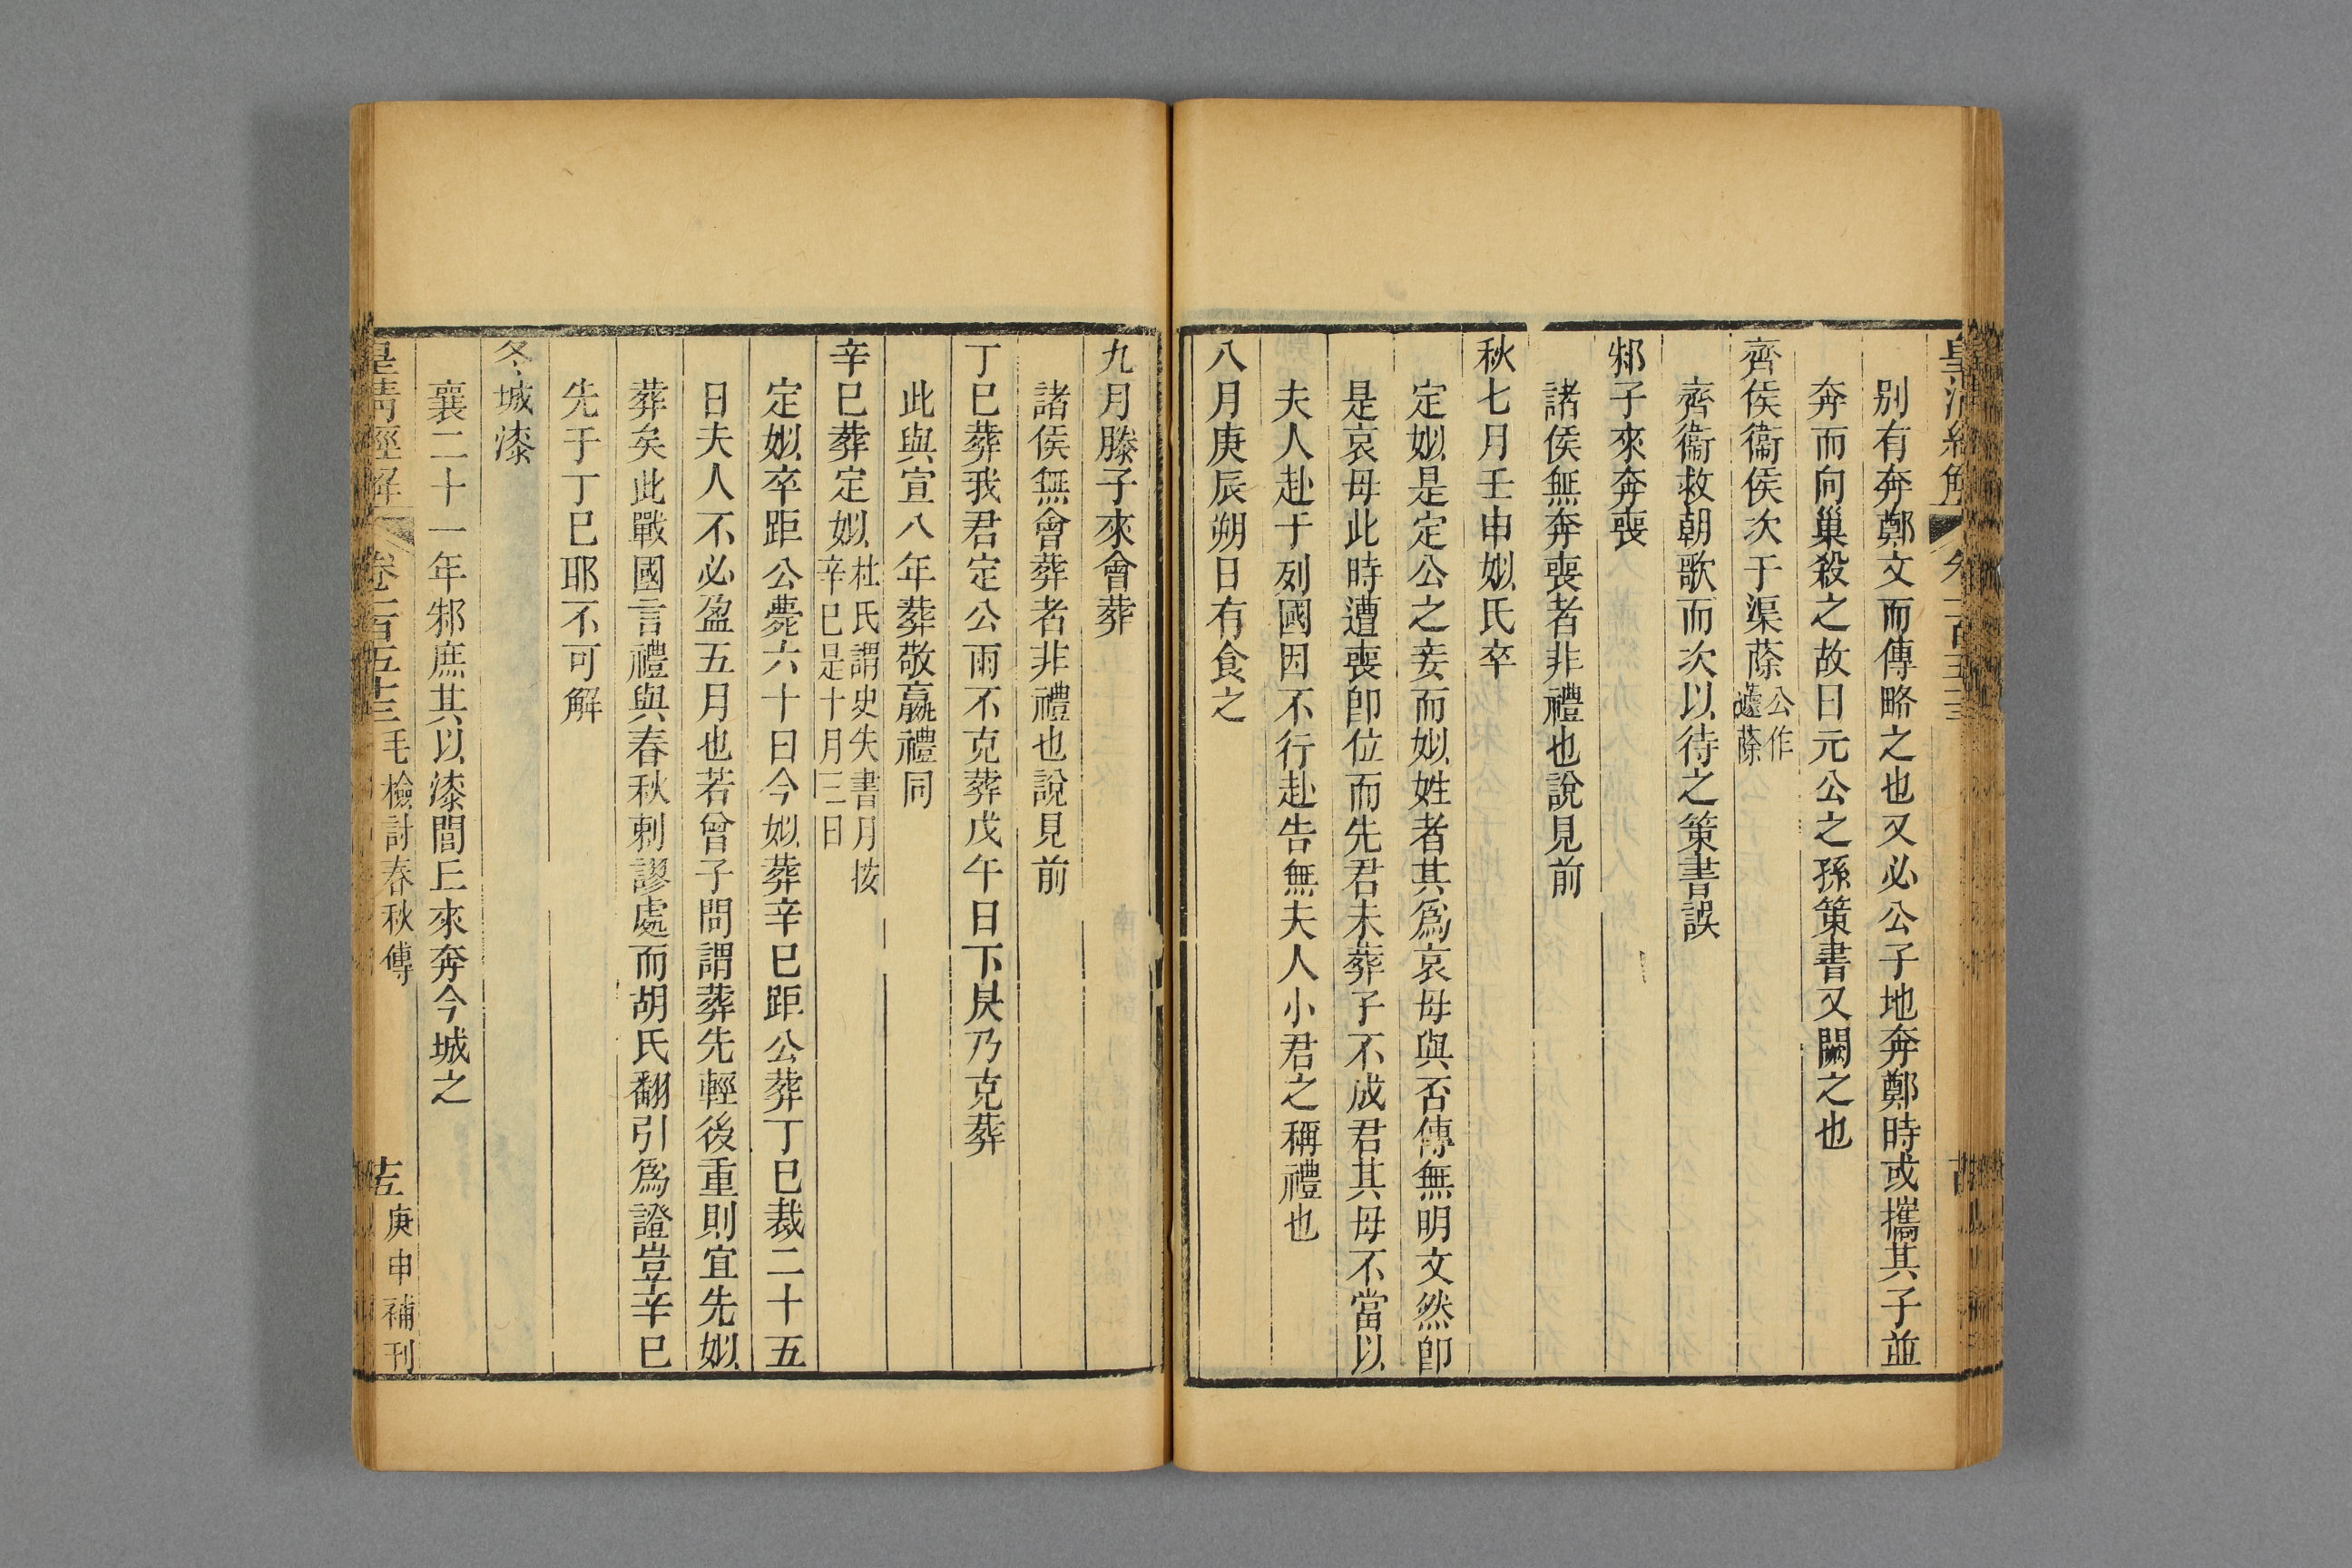 別有奔鄭文而傳略之也又必公子地奔鄭時或攜其子並
奔而向巢殺之故曰元公之孫策書又闕之也
齊侯衞侯次于渠蒢公作蘧蒢
齊衞救朝歌而次以待之策書誤
邾子來奔喪
諸侯無奔喪者非禮也說見前
秋七月壬申姒氏卒
定姒是定公之妾而姒姓者其爲哀母與否傳無明文然卽
是哀母此時遭喪卽位而先君未葬子不成君其母不當以
夫人赴于列國因不行赴告無夫人小君之稱禮也
八月庚辰朔日有食之
九月滕子來會葬
諸侯無會葬者非禮也說見前
丁巳葬我君定公雨不克葬戊午日下昃乃克葬
此與宣八年葬敬嬴禮同
辛巳葬定姒杜氏謂史失書月按辛巳是十月三日
定姒卒距公薨六十日今姒葬辛巳距公葬丁巳裁二十五
日夫人不必盈五月也若曾子問謂葬先輕後重則宜先姒
葬矣此戰國言禮與春秋剌謬處而胡氏翻引爲證豈辛巳
先于丁巳耶不可解
冬城漆
襄二十一年邾庶其以漆閭丘來奔今城之
皇清經解 卷一百五十三 毛檢討春秋傳 十五 庚申補刊